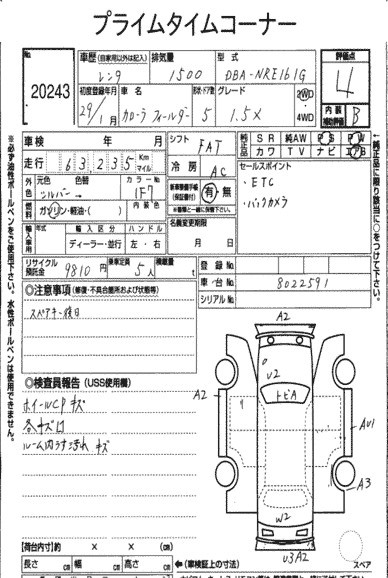 プライムタイムコーナー
No.
20243
車歴(自家用以外は記入) 排気量 型式
レンタ 1500 DBA-NRE161G
初度登録年月 車名 形状・ドア数 グレード
29年 1月 カローラ フィールダー 5 1.5X
2WD
4WD
評価点
4
内装補助評価
B
車検 年 月
走行 63,235 Km マイル
外色 元色 色替 カラーNo.
シルバー→ 1F7
燃料 ガソリン・軽油・( ) 内装色
輸入車用 年式 輸入区分 ハンドル
ディーラー・並行 左・右
シフト FAT
冷房 AC
新車整備手帳(保証書付) 有・無
※書類と一緒に保管下さい。
名義変更期限
月 日
純正品 SR 純AW PS PW
カワ TV ナビ エアB
セールスポイント
・ETC
・バックカメラ
リサイクル預託金 9810円 乗車定員 5人 積載量 t
登録No.
車台No. 8022591
シリアルNo.
◎注意事項(修復・不具合箇所および状態等)
スペアキー後日
◎検査員報告(USS使用欄)
ホイールCPキズ
各キズ凹
ルーム内うす汚れ キズ
A2
U2
トビA
A2
AU1
A3
W2
U3A2
スペア
【荷台内寸】約 × × (cm)
長さ cm 幅 cm 高さ cm ←(車検証上の寸法)
※必ず油性ボールペンをご使用下さい。水性ボールペンは使用できません。
★純正品に限り該当に○をつけて下さい。